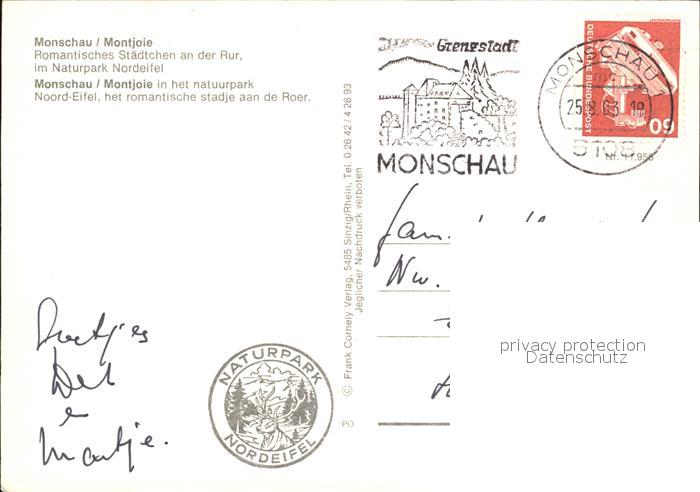 Monschau / Montjoie
Romantisches Städtchen an der Rur,
im Naturpark Nordeifel
Monschau / Montjoie in het natuurpark
Noord-Eifel, het romantische stadje aan de Roer.
Grenzstadt
MONSCHAU
MONSCHAU 1
5108
DEUTSCHE BUNDESPOST
60
Nr. 11.958
© Frank Cornely Verlag, 5485 Sinzig/Rhein, Tel. 0 26 42 / 4 28 93
Jeglicher Nachdruck verboten
Fam.
NATURPARK
NORDEIFEL
PO
Groetjes
e
Martje.
privacy protection
Datenschutz